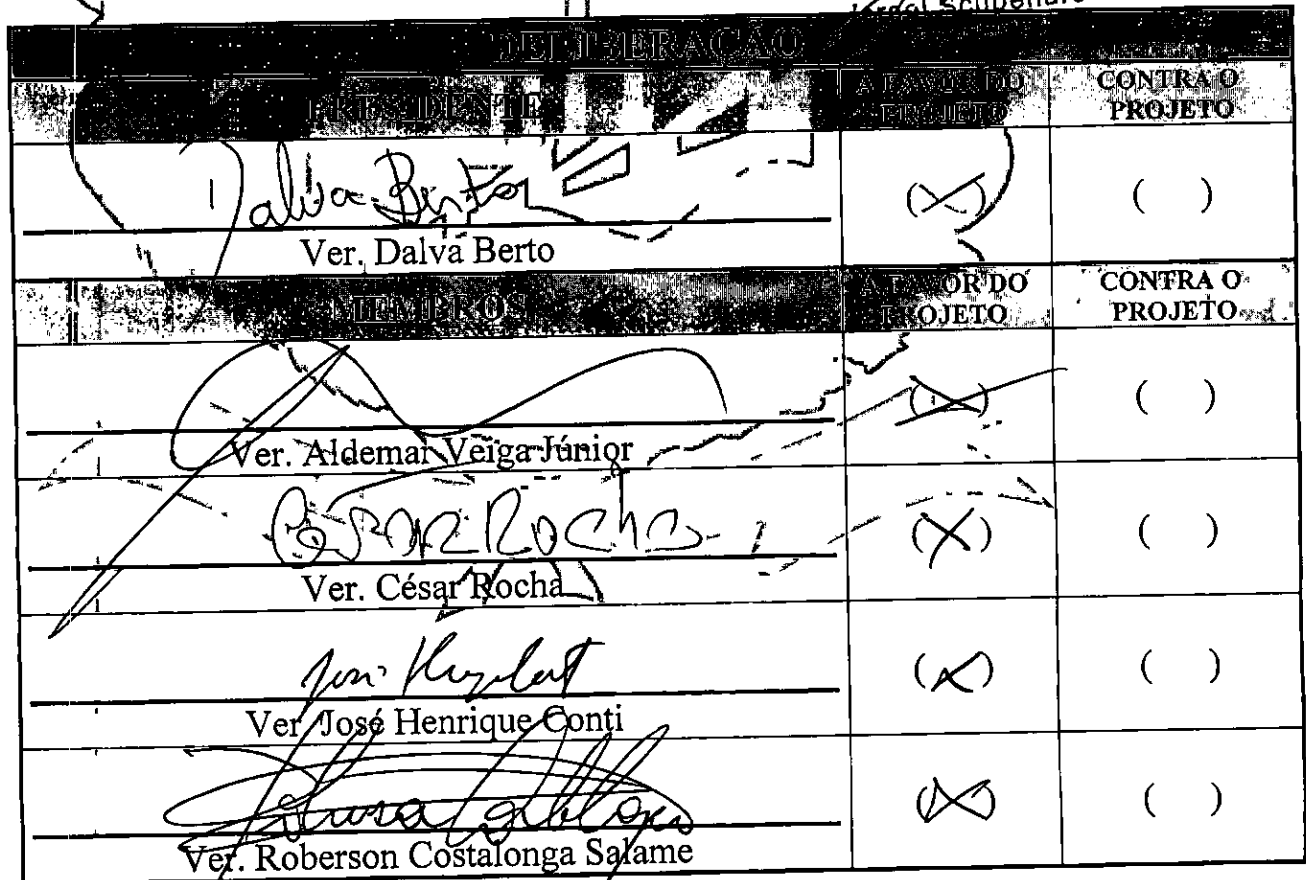 DELIBERAÇÃO
PRESIDENTE A FAVOR DO PROJETO CONTRA O PROJETO
Dalva Berto (X) ( )
Ver. Dalva Berto
MEMBROS A FAVOR DO PROJETO CONTRA O PROJETO
(X) ( )
Ver. Aldemar Veiga Júnior
César Rocha (X) ( )
Ver. César Rocha
(X) ( )
Ver José Henrique Conti
(X) ( )
Ver. Roberson Costalonga Salame